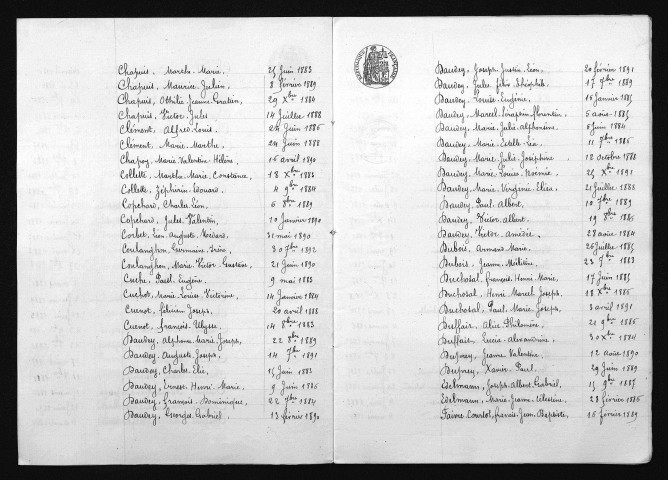 Chapuis, Marthe Marie, 25 Juin 1883
Chapuis, Maurice Julien, 8 février 1889
Chapuis, Othilie Jeanne 29 Xbre 1884
Chapuis, Victor Jules 14 Juillet 1888
Clément, Alfred Louis, 24 Juin 1886
Clément, Marie Marthe, 24 Juin 1888
Chapoy, Marie Valentine Hélène, 16 avril 1890
Collette, Marthe Marie Constance, 18 Xbre 1886
Collette, Zéphirin Edouard, 4 9bre 1884
Copchard, Charles Léon, 6 8bre 1889
Copchard, Jules Valentin, 20 Janvier 1890
Corbet, Léon Auguste 31 mai 1890
Coulanghon, Germaine Irène, 30 7bre 1892
Coulanghon, Marie Victor Gustave, 21 Juin 1890
Cuche, Paul Eugène, 9 mai 1883
Cuchot, Marie Louise Victorine, 14 Janvier 1884
Cuenot, Joseph, 20 avril 1888
Cuenot, françois Ulysse, 14 8bre 1883
Baudey, Alphonse Marie Joseph, 22 8bre 1889
Baudey, Auguste Joseph, 14 7bre 1891
Baudey, Charles Elie, 15 Juin 1882
Baudey, Ernest Henri Marie, 9 Juin 1886
Baudey, françois Dominique, 22 7bre 1884
Baudey, Georges Gabriel, 13 février 1890
Baudey, Joseph Justin Léon, 20 février 1891
Baudey, Jules félix Théophile, 17 7bre 1889
Baudey, Louise Eugénie, 16 Janvier 1885
Baudey, Marcel florentin, 5 août 1885
Baudey, Marie Julie Alphonsine, 8 Juin 1884
Baudey, Marie Estelle Léa, 11 7bre 1886
Baudey, Marie Julie Joséphine, 12 Octobre 1888
Baudey, Marie Louise Noémie, 25 Xbre 1891
Baudey, Marie Virginie Elisa, 21 Juillet 1888
Baudey, Paul Albert, 10 7bre 1889
Baudey, Victor Albert, 19 8bre 1885
Baudey, Victor Amédée, 28 août 1884
Dubois, Armand Marie, 26 Juillet 1885
Dubois, Jeanne 23 7bre 1883
Buchotal, françois Henri Marie, 17 Juin 1885
Buchotal, Henri Marcel Joseph, 18 Xbre 1886
Buchotal, Paul Marie Joseph, 3 avril 1891
Buffair, Alice Philomène, 21 9bre 1886
Buffair, Lucie Alexandrine, 30 Xbre 1884
Duprey, Jeanne Valentine, 12 Août 1890
Duprey, Xavier Paul, 29 Juin 1889
Edelmann, Joseph Albert Gabriel, 15 9bre 1887
Edelmann, Marie Jeanne Célestine, 28 février 1886
Faivre Courtot, francis Jean Baptiste, 16 février 1889